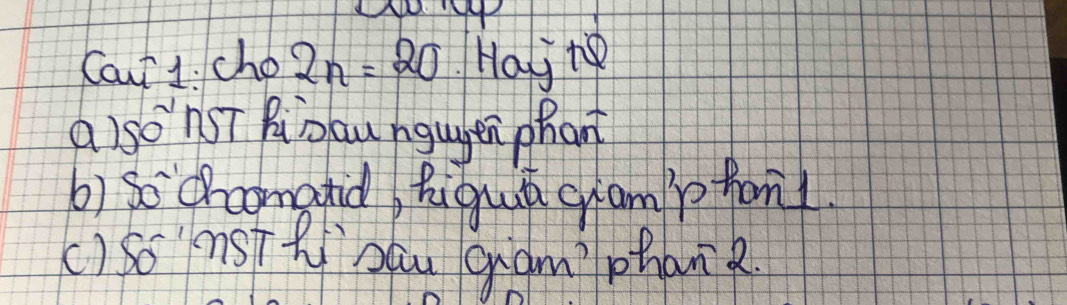 Câu 1: cho 2n = 20. Hãy
a) số NST kì sau nguyên phân
b) số choomatid, kì giữa giảm phân 1.
c) số NST kì sau giảm phân 2.